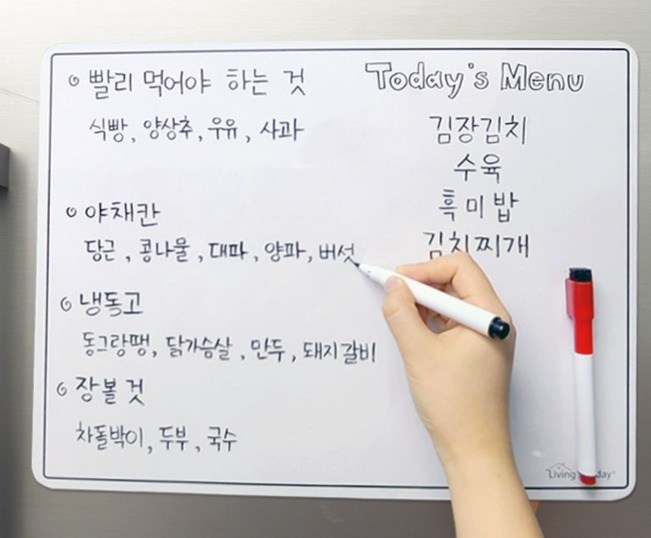 빨리 먹어야 하는 것
식빵, 양상추, 우유, 사과
야채칸
당근, 콩나물, 대파, 양파, 버섯
냉동고
동그랑땡, 닭가슴살, 만두, 돼지갈비
장볼 것
차돌박이, 두부, 국수
Today's Menu
김장김치
수육
흑미밥
김치찌개